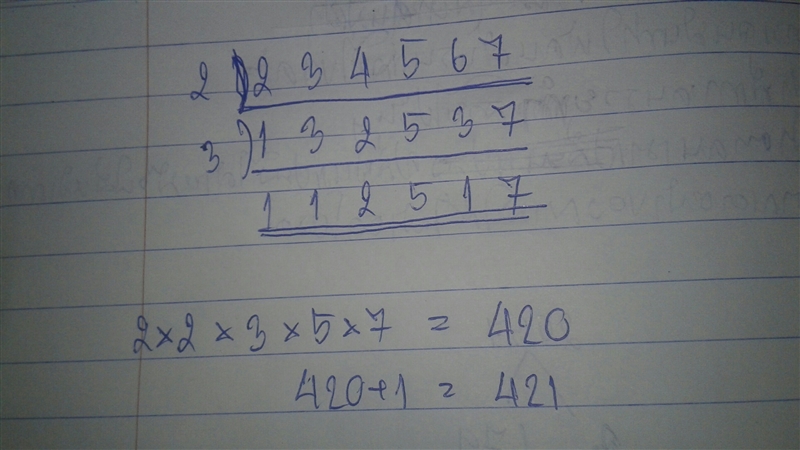 2 ) 2 3 4 5 6 7
3 ) 1 3 2 5 3 7
1 1 2 5 1 7
2 × 2 × 3 × 5 × 7 = 420
420 + 1 = 421